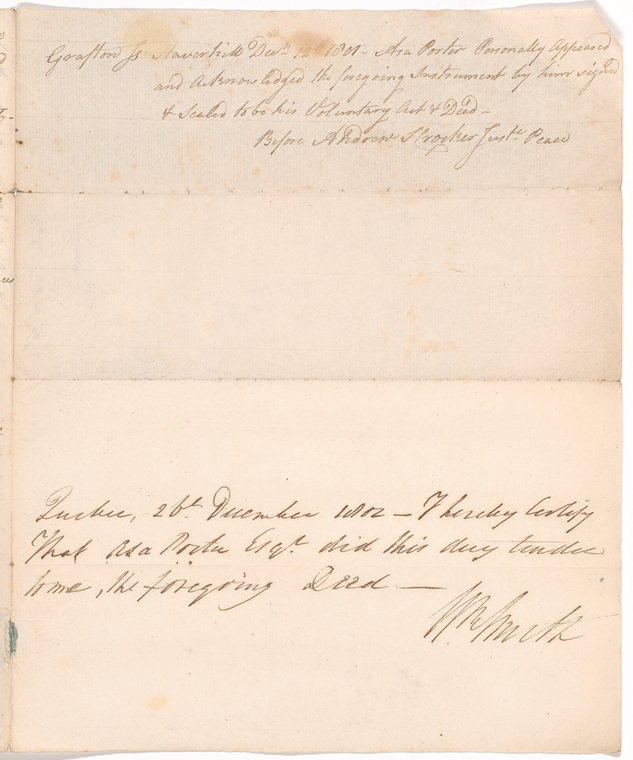 Grafton Ss Haverhill Decr. 12th 1801 - Asa Porter Personally Appeared
and Acknowledged the foregoing Instrument by him signed
& Sealed to be his Voluntary Act & Deed -
Before Andrew S Crocker Juste. Peace
Quebec, 26t. December 1802 - I hereby Certify
That Asa Porter Esqr. did this day tender
to me, the foregoing Deed -
Wm Smith